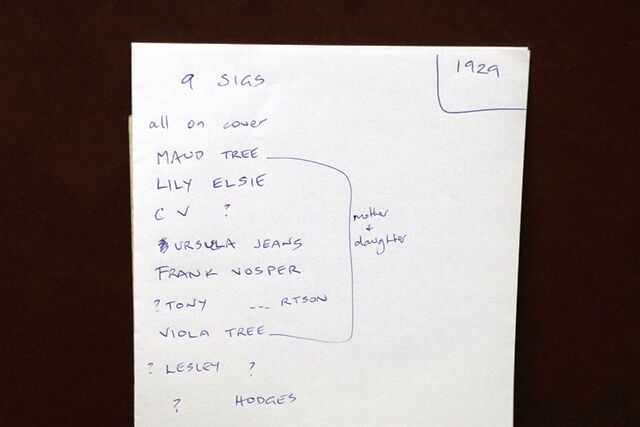 9 SIGS
1929
all on cover
MAUD TREE
LILY ELSIE
C V ?
URSULA JEANS
FRANK VOSPER
? TONY --- RTSON
VIOLA TREE
mother
+
daughter
? LESLEY ?
? HODGES